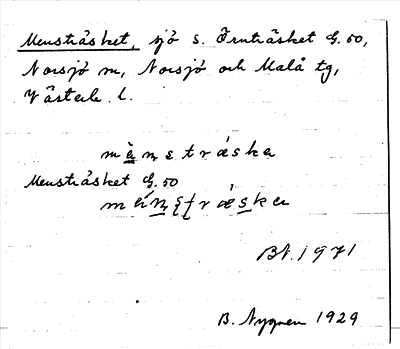 Mensträsket, sjö s. Örnträsket G. 50,
Norsjö sn, Norsjö och Malå tg,
Västerb. l.
mènstræska
Mensträsket G. 50
Bt. 1971
B. Nygren 1929